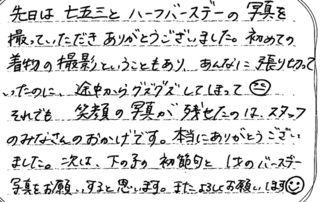 先日は 七五三と ハーフバースデーの 写真を
撮っていただき ありがとうございました。初めての
着物の 撮影ということもあり、あんなに 張り切って
いたのに、途中から グズグズしてしまって
それでも 笑顔の写真が 残せたのは、スタッフ
のみなさんの おかげです。本当にありがとうござい
ました。次は、下の子の 初節句と 1才のバースデー
写真をお願いすると思います。またよろしくお願いします